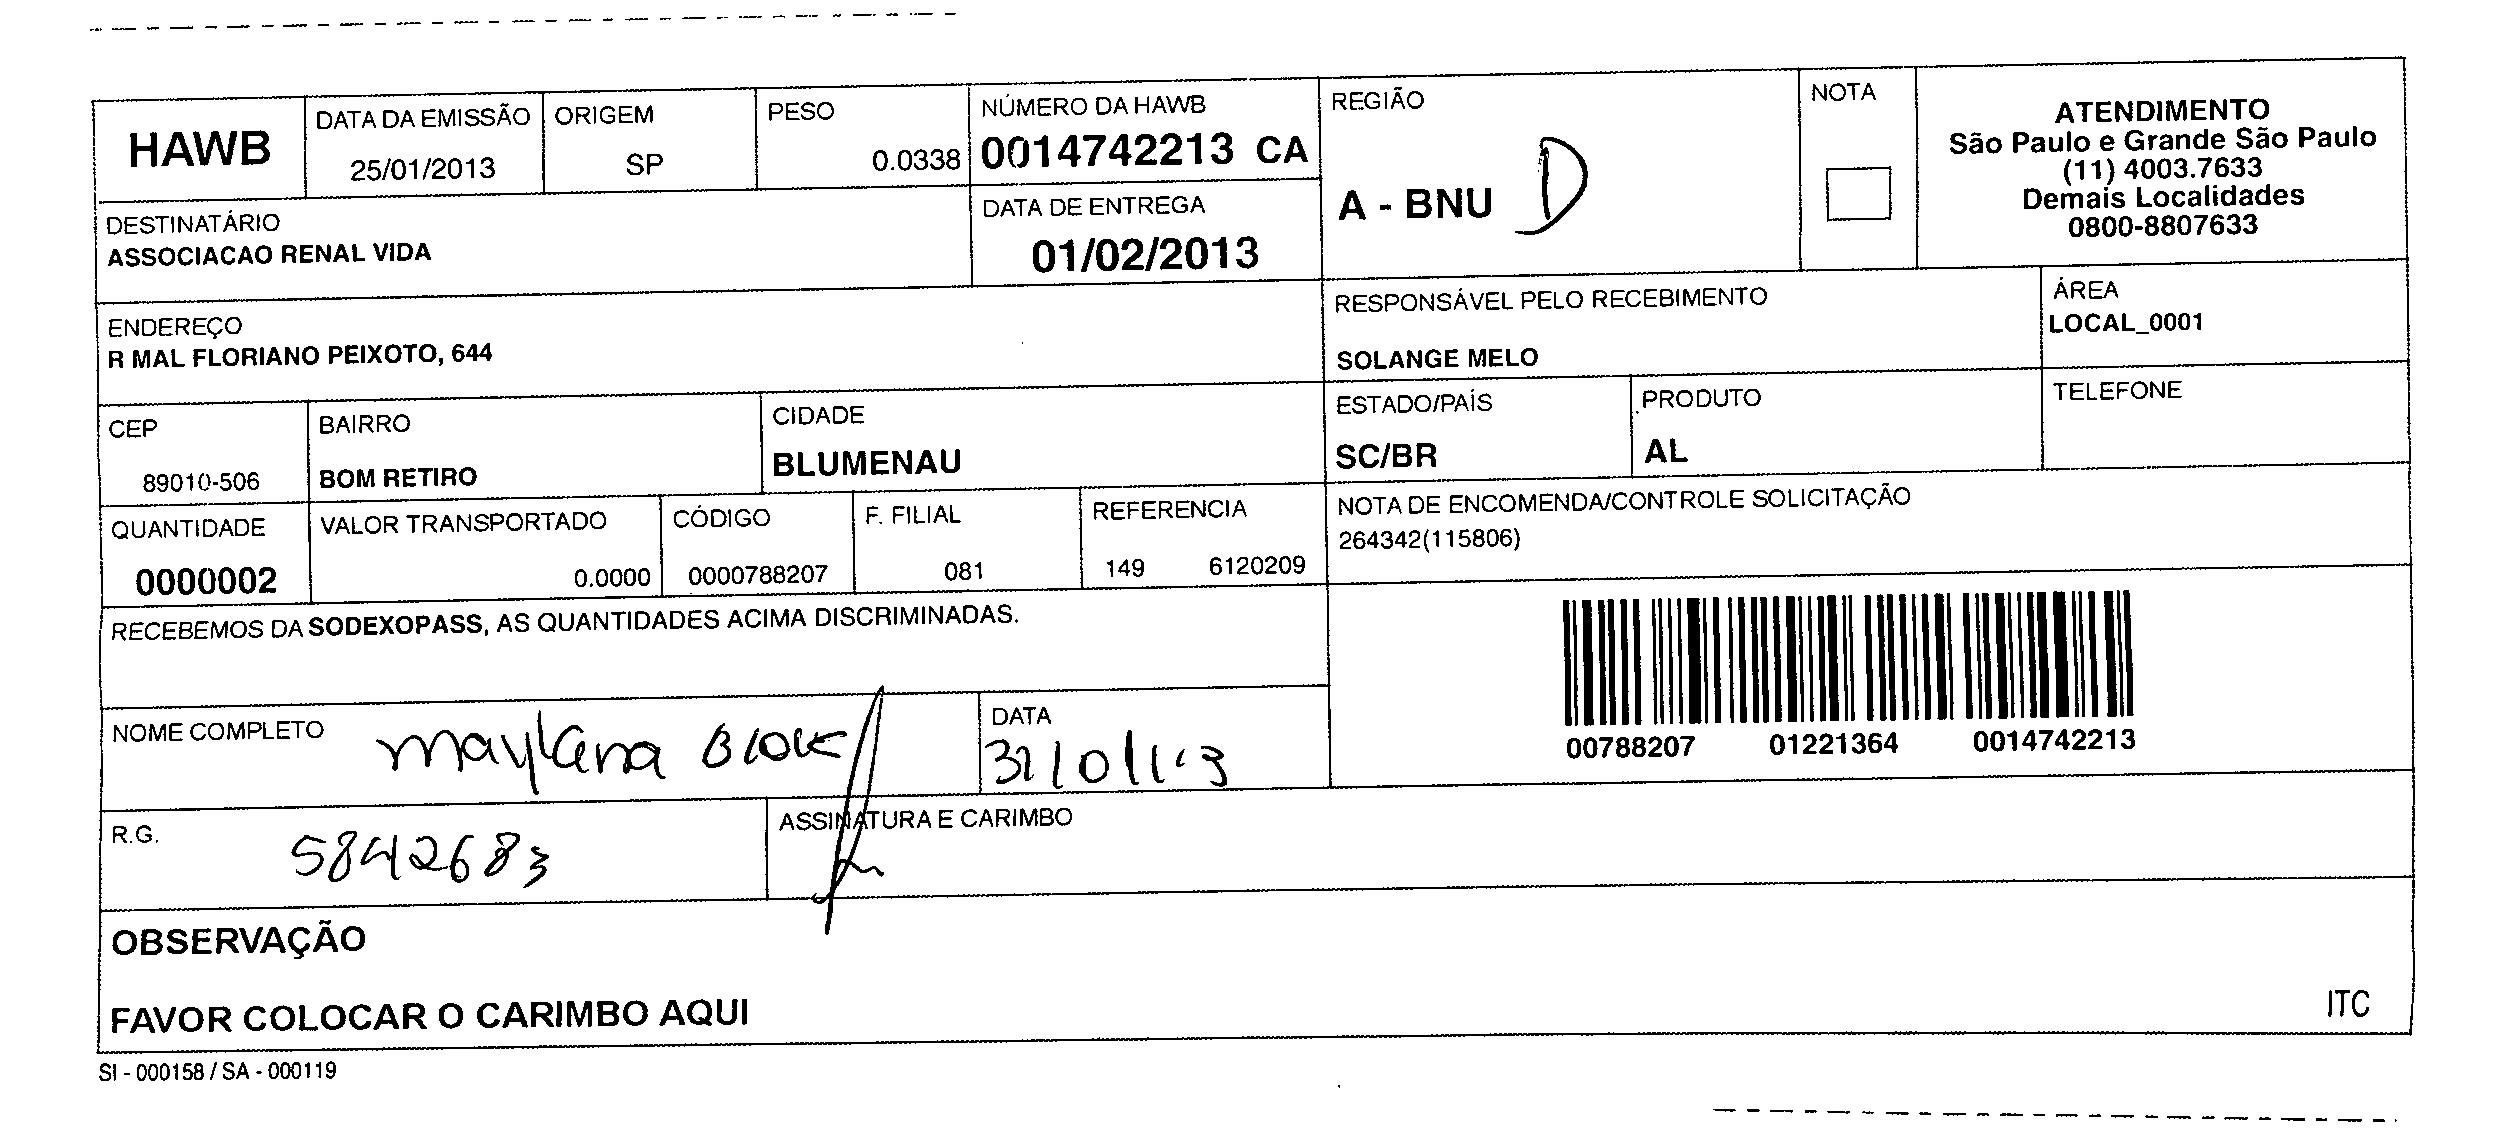 HAWB
DATA DA EMISSÃO
25/01/2013
ORIGEM
SP
PESO
0.0338
NÚMERO DA HAWB
0014742213 CA
REGIÃO
A - BNU D
NOTA
ATENDIMENTO
São Paulo e Grande São Paulo
(11) 4003.7633
Demais Localidades
0800-8807633
DESTINATÁRIO
ASSOCIACAO RENAL VIDA
DATA DE ENTREGA
01/02/2013
ENDEREÇO
R MAL FLORIANO PEIXOTO, 644
RESPONSÁVEL PELO RECEBIMENTO
SOLANGE MELO
ÁREA
LOCAL_0001
CEP
89010-506
BAIRRO
BOM RETIRO
CIDADE
BLUMENAU
ESTADO/PAÍS
SC/BR
PRODUTO
AL
TELEFONE
QUANTIDADE
0000002
VALOR TRANSPORTADO
0.0000
CÓDIGO
0000788207
F. FILIAL
081
REFERENCIA
149 6120209
NOTA DE ENCOMENDA/CONTROLE SOLICITAÇÃO
264342(115806)
RECEBEMOS DA SODEXOPASS, AS QUANTIDADES ACIMA DISCRIMINADAS.
00788207 01221364 0014742213
NOME COMPLETO
Maylana
DATA
R.G.
5842683
ASSINATURA E CARIMBO
OBSERVAÇÃO
FAVOR COLOCAR O CARIMBO AQUI
ITC
SI - 000158 / SA - 000119